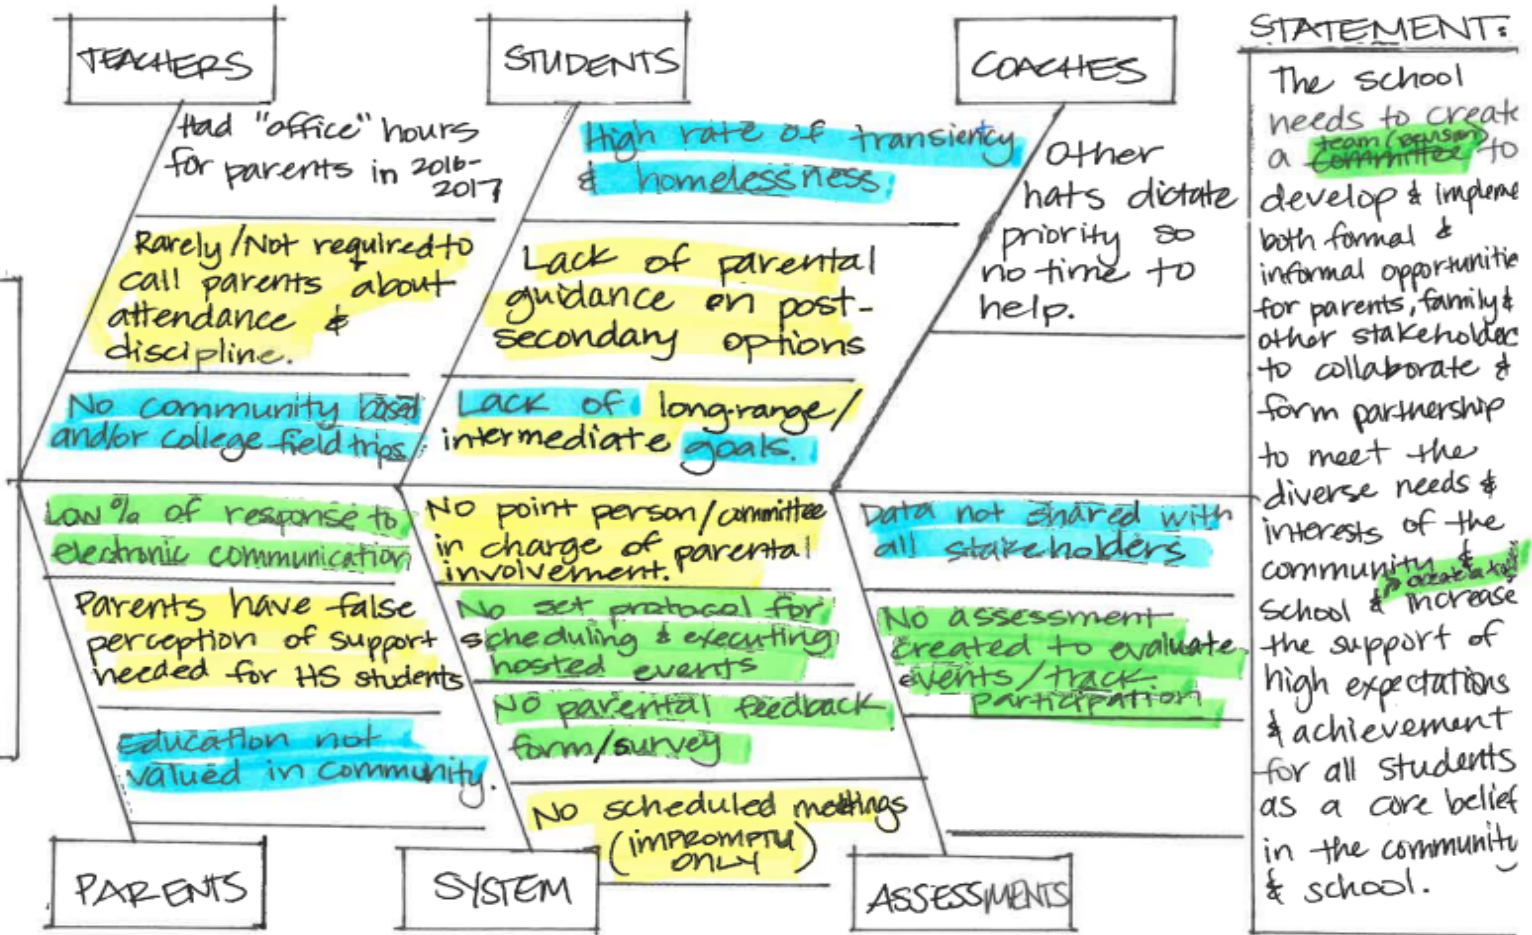 TEACHERS
Had "office" hours
for parents in 2016-
2017
Rarely/Not required to
call parents about
attendance &
discipline.
No community based
and/or college field trips.
STUDENTS
High rate of transiency
& homelessness
Lack of parental
guidance on post-
secondary options
Lack of long-range/
intermediate goals.
COACHES
Other
hats dictate
priority so
no time to
help.
Low % of response to
electronic communication
Parents have false
perception of support
needed for HS students
Education not
valued in community.
PARENTS
No point person/committee
in charge of parental
involvement.
No set protocol for
scheduling & executing
hosted events
No parental feedback
form/survey
No scheduled meetings
(IMPROMPTU
ONLY)
SYSTEM
Data not shared with
all stakeholders
No assessment
created to evaluate
events/track
participation
ASSESSMENTS
STATEMENT:
The school
needs to create
team/
a committee to
develop & impleme
both formal &
informal opportunitie
for parents, family &
other stakeholder
to collaborate &
form partnership
to meet the
diverse needs &
interests of the
community &
school & increase
the support of
high expectations
& achievement
for all students
as a core belief
in the community
& school.